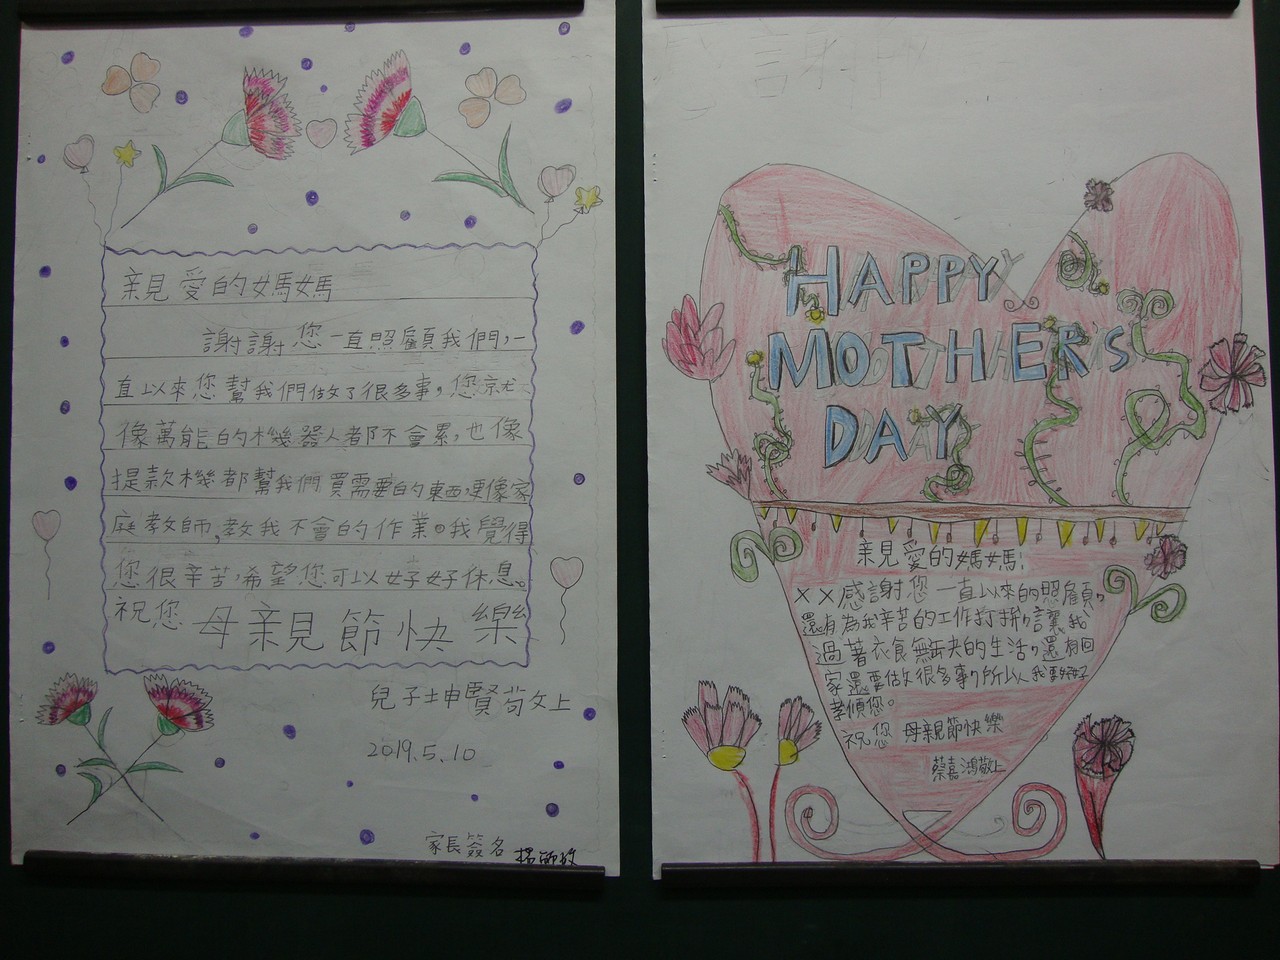 親愛的媽媽
謝謝您一直照顧我們,一
直以來您幫我們做了很多事,您就
像萬能的機器人都不會累,也像
提款機都幫我們買需要的東西,更像家
庭教師,教我不會的作業。我覺得
您很辛苦,希望您可以好好休息。
祝您 母親節快樂
兒子坤賢敬上
2019.5.10
家長簽名
感謝
HAPPY
MOTHER'S
DAY
親愛的媽媽:
××感謝您一直以來的照顧,
還有為我辛苦的工作打拚,讓我
過著衣食無缺的生活,還有回
家還要做很多事,所以我要好好
孝順您。
祝您 母親節快樂
蔡嘉鴻敬上